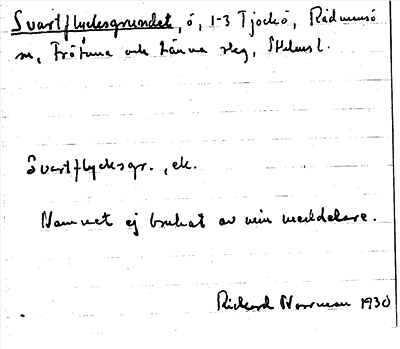 Svartflycksgrundet, ö, 1-3 Tjockö, Rådmansö
sn, Frötuna och Länna skg, Sthlms l.
Svartflycksgr., ek.
Namnet ej brukat av min meddelare.
Rickard Norrman 1930